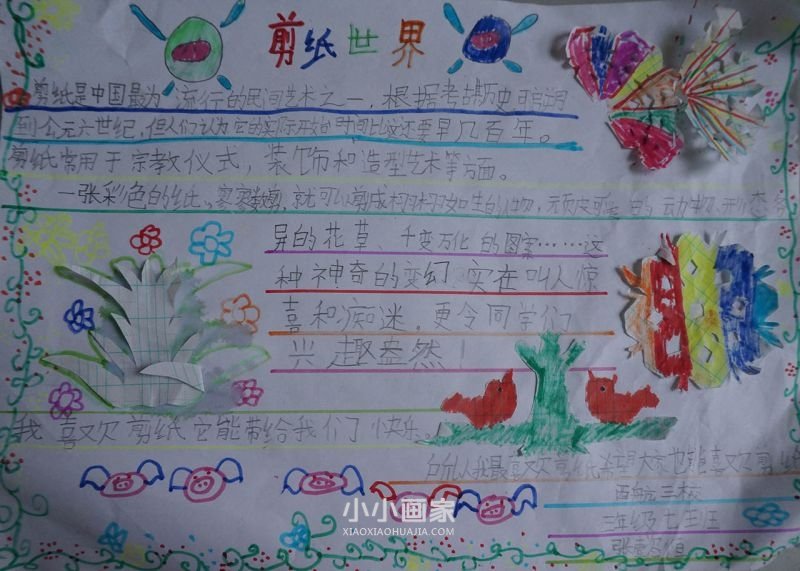 剪纸世界
剪纸是中国最为流行的民间艺术之一,根据考古历史可追溯
到公元六世纪,但人们认为它的实际开始时间比这还要早几百年。
剪纸常用于宗教仪式,装饰和造型艺术等方面。
一张彩色的纸,寥寥数剪,就可以剪成栩栩如生的人物,顽皮可爱的动物、形态各
异的花草、千变万化的图案……这
种神奇的变幻,实在叫人惊
喜和痴迷,更令同学们
兴趣盎然!
我喜欢剪纸它能带给我们快乐。
所以我最喜欢剪纸希望大家也能喜欢剪纸
三校
三年级七班
小小画家
XIAOXIAOHUAJIA.COM